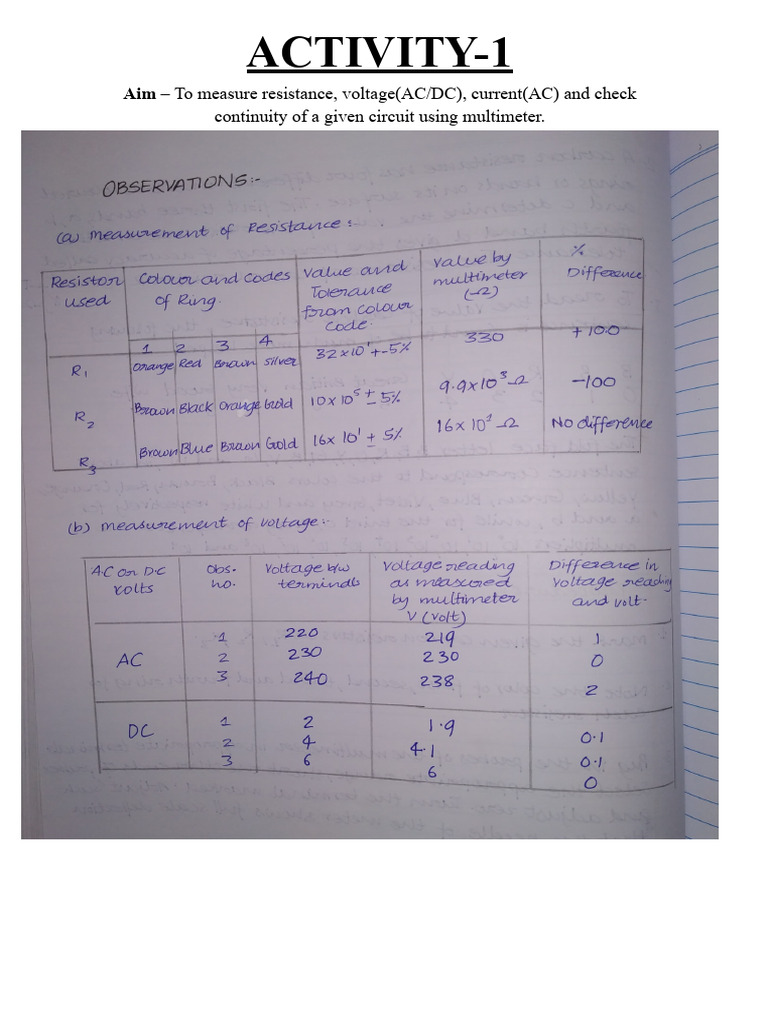 ACTIVITY-1
Aim – To measure resistance, voltage(AC/DC), current(AC) and check
continuity of a given circuit using multimeter.
OBSERVATIONS:-
(a) Measurement of Resistance:
Resistor used | Colour and Codes of Ring. | Value and Tolerance from Colour Code. | Value by multimeter (Ω) | % Difference
1 2 3 4
R1 Orange Red Brown Silver 32x10¹+-5% 330 +10.0
R2 Brown Black Orange Gold 10x10⁵±5% 9.9x10³Ω -100
R3 Brown Blue Brown Gold 16x10¹±5% 16x10¹Ω No difference
(b) Measurement of voltage:-
AC or DC volts | Obs. no. | Voltage b/w terminals | Voltage reading as measured by multimeter V (volt) | Difference in voltage reading and volt.
AC 1 220 219 1
2 230 230 0
3 240 238 2
DC 1 2 1.9 0.1
2 4 4.1 0.1
3 6 6 0